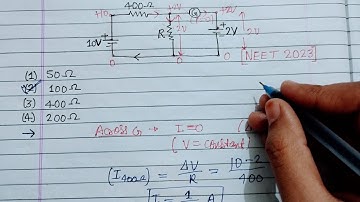 400Ω
+10
+2V
G
+2V
(I=0)
R
2V
10V
2V
2V
0
0
0
[NEET 2023]
(1) 50Ω
(2) 100Ω
(3) 400Ω
(4) 200Ω
→ Across G → I=0
(V = Constant
(I400Ω) = ΔV/R = 10-2/400
I = 1 A